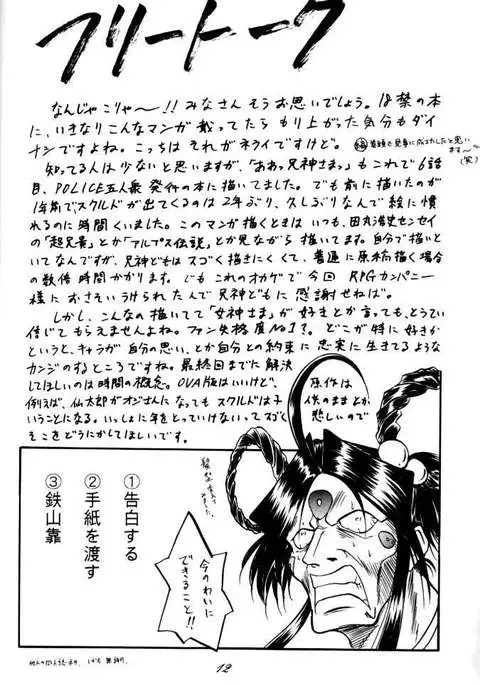 フリートーク
なんじゃこりゃ〜!!みなさんそうお思いでしょう。18禁の本
に、いきなりこんなマンガ載ってたらもり上がった気分もダイ
ナシですよね。こっちはそれがネライですけど。
知ってる人は少ないと思いますが、「ああっ兄神さまっ」もこれで6話
目、POLICE五人衆発行の本に描いてました。でも前に描いたのが
1年前でスクルドが出てくるのは2年ぶり、久しぶりなんで絵に慣
れるのに時間くいました。このマンガ描くときはいつも、田丸浩史センセイ
の「超兄貴」とか「アルプス伝説」とか見ながら描いてます。自分で描いと
いてなんですが、兄神どもはスゴく描きにくくて、普通に原稿描く場合
の数倍時間かかります。でもこれのオカゲで今回RPGカンパニー
様におさそいうけられたんで兄神どもに感謝せねば。
しかし、こんなの描いてて「女神さま」が好きとか言っても、とうてい
信じてもらえませんよね。ファン失格度No1?。どこが特に好きか
というと、キャラが自分の思い、とか自分との約束に忠実に生きてるような
カンジのするところですね。最終回までに解決
してほしいのは時間の概念。OVA版はいいけど、
例えば、仙太郎がオジさんになってもスクルドは子
ということになる。いっしょに年をとっていけないってスゴく
そこをどうにかしてほしいです。
原作は
このままとか
悲しいので
今のわいに
できること!!
①告白する
②手紙を渡す
③鉄山靠
12